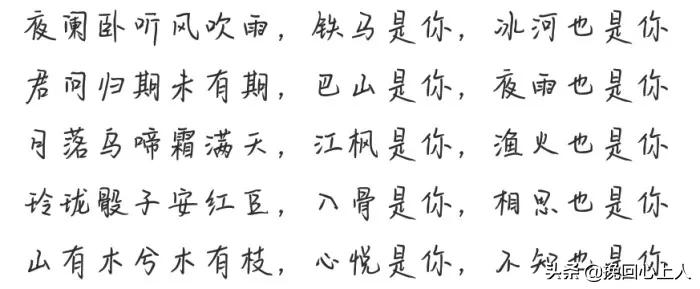 夜阑卧听风吹雨，铁马是你，冰河也是你
君问归期未有期，巴山是你，夜雨也是你
月落乌啼霜满天，江枫是你，渔火也是你
玲珑骰子安红豆，入骨是你，相思也是你
山有木兮木有枝，心悦是你，不知也是你
头条@挽回心上人